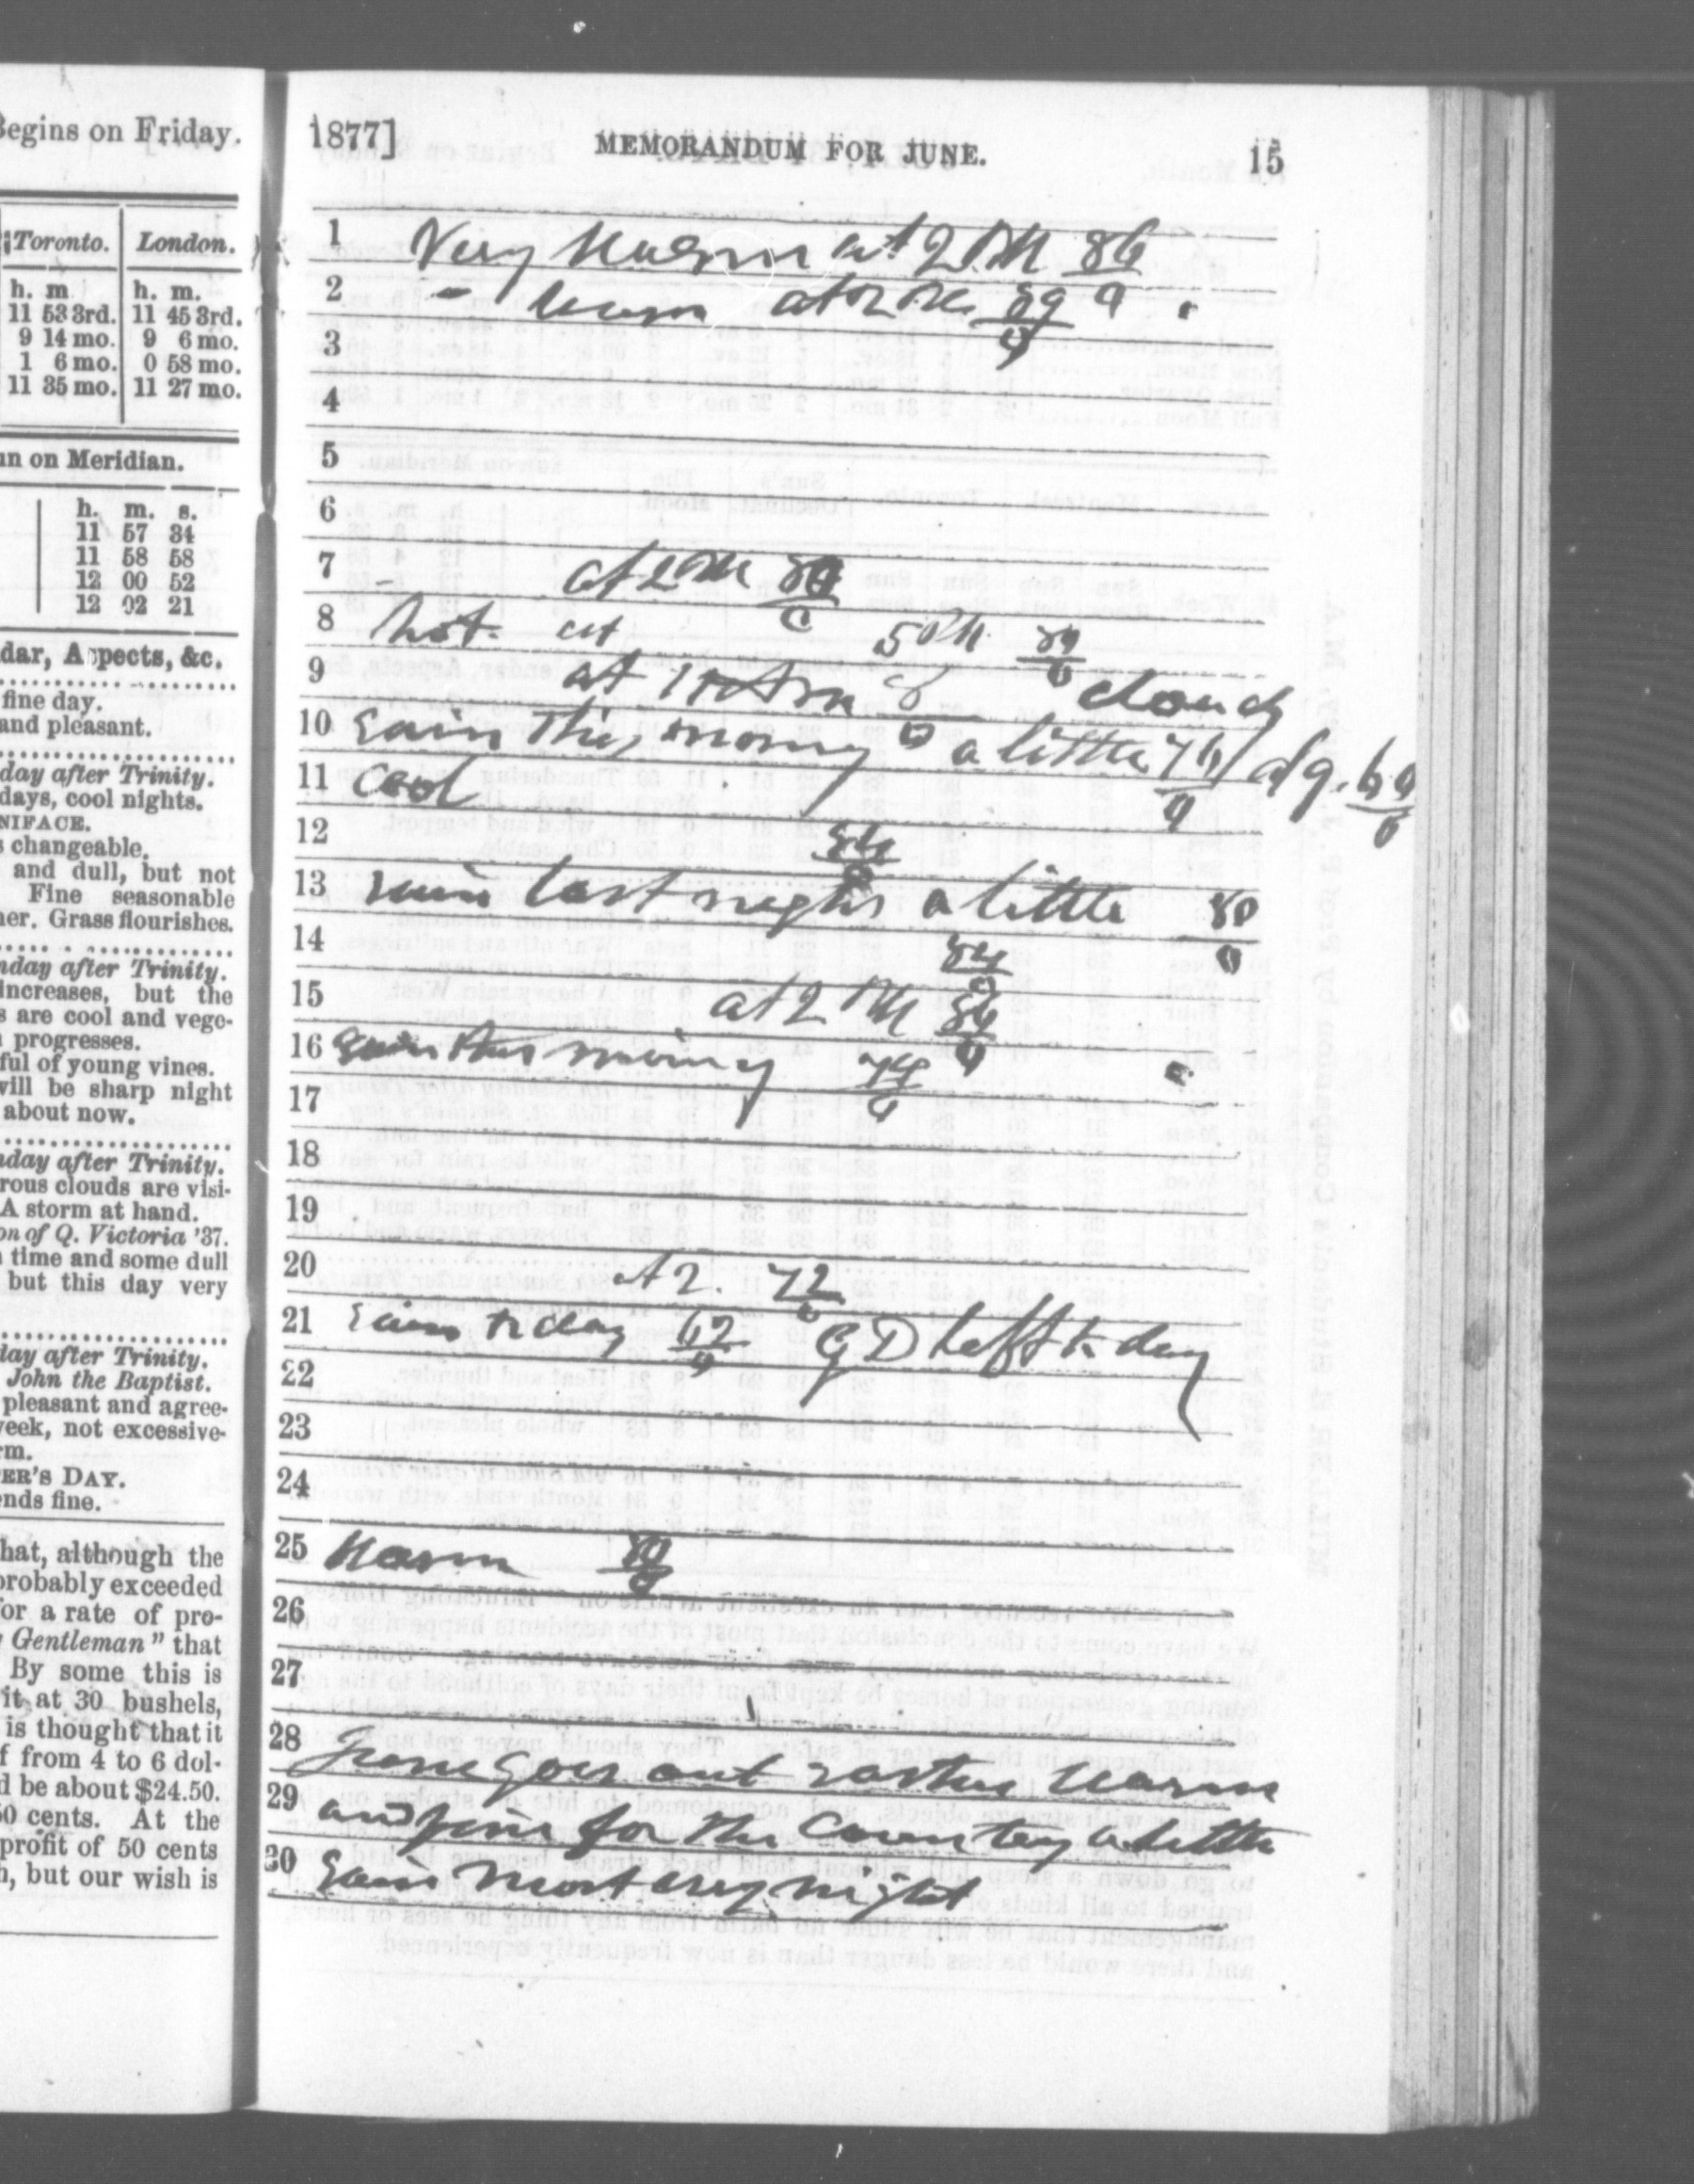 Begins on Friday.
Toronto. London.
h. m. h. m.
11 53 3rd. 11 45 3rd.
9 14 mo. 9 6 mo.
1 6 mo. 0 58 mo.
11 35 mo. 11 27 mo.
un on Meridian.
h. m. s.
11 57 34
11 58 58
12 00 52
12 02 21
dar, Aspects, &c.
fine day.
and pleasant.
day after Trinity.
days, cool nights.
NIFACE.
s changeable.
and dull, but not
Fine seasonable
her. Grass flourishes.
nday after Trinity.
increases, but the
s are cool and vege-
progresses.
ful of young vines.
will be sharp night
about now.
nday after Trinity.
rous clouds are visi-
A storm at hand.
on of Q. Victoria '37.
time and some dull
but this day very
day after Trinity.
John the Baptist.
pleasant and agree-
week, not excessive-
rm.
ER'S DAY.
ends fine.
hat, although the
probably exceeded
for a rate of pro-
Gentleman" that
By some this is
it at 30 bushels,
is thought that it
f from 4 to 6 dol-
d be about $24.50.
50 cents. At the
profit of 50 cents
h, but our wish is
1877] MEMORANDUM FOR JUNE. 15
1 Very Warm at 2 PM 86
2 - warm at 2 PM 89
3
4
5
6
7 at 2 PM 80
8 hot at 5 PM 89
9 at cloudy
10 rain this morning a little 76 at 9. 60
11 Cool
12 84
13 rain last night a little 80
14 84
15 at 2 PM 84
16 rain this morning 74
17
18
19
20 at 2. 72
21 rain to day 62 G D left to day
22
23
24
25 Warm 80
26
27
28 June goes out rather warm
29 and fine for the Country a little
30 rain most every night